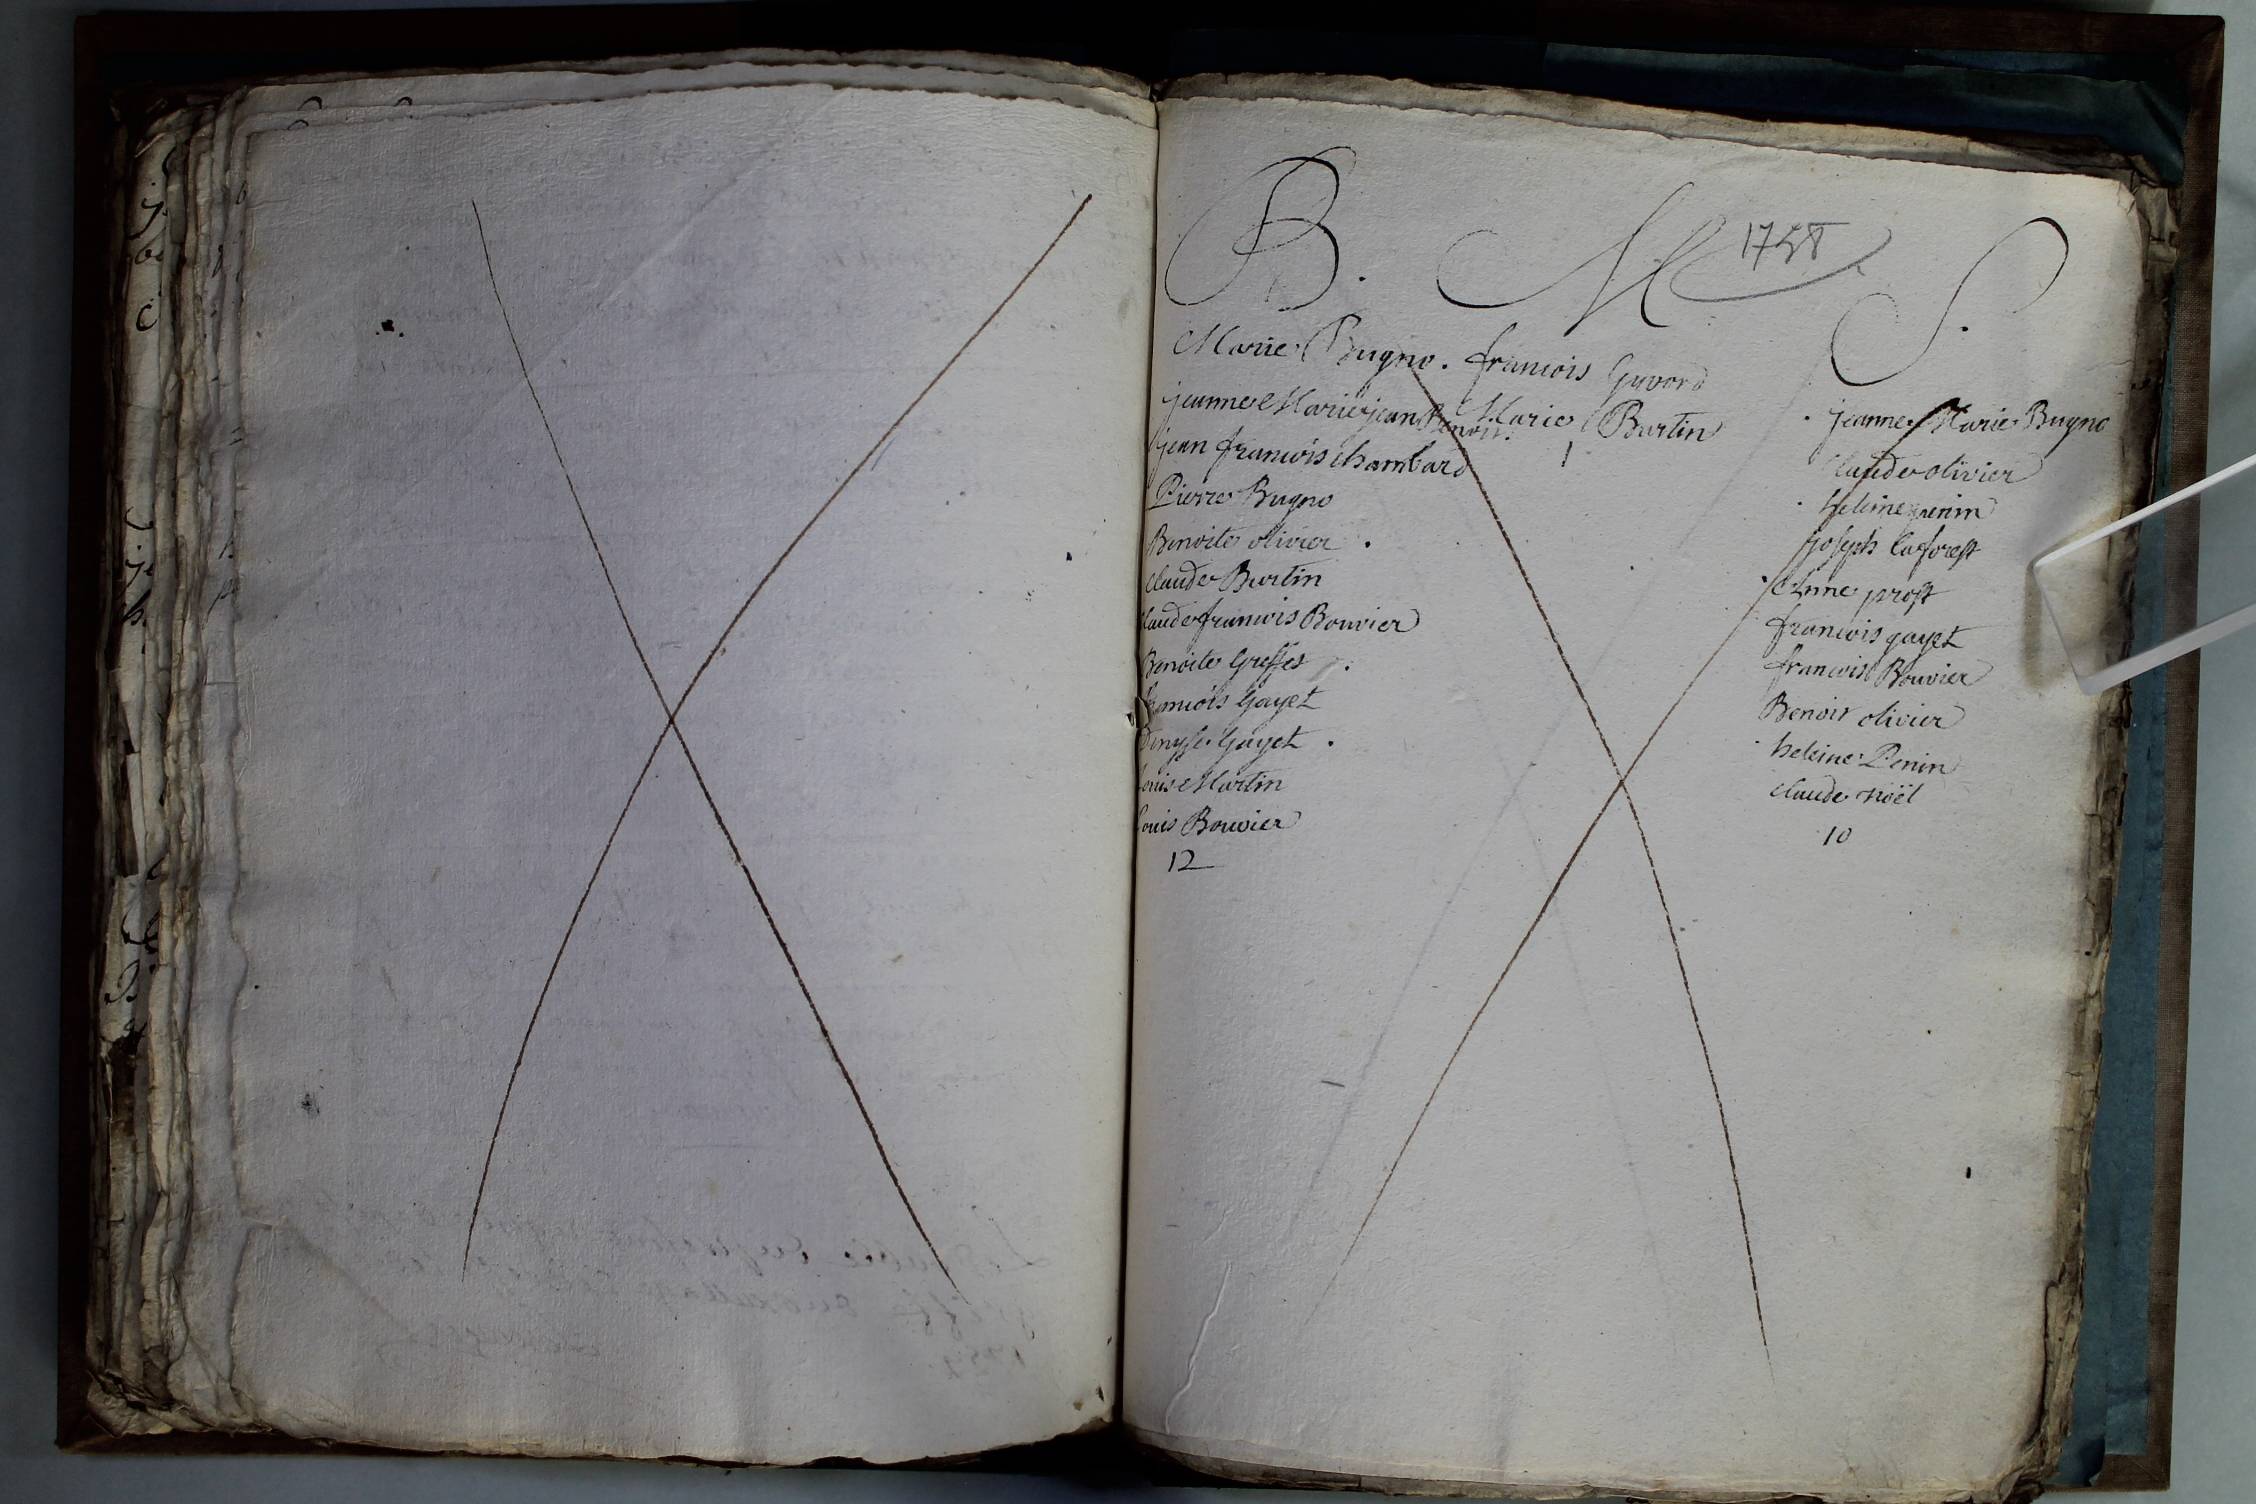 B. M. S.
1758
Marie Bugno.
jeanne Marie jean Benoit.
jean francois chambard
Pierre Bugno
Benoite olivier .
Claude Burtin
Claude francois Bouvier
Benoite Greffet .
francois Gayet
Denyse Gayet .
Louis Martin
Louis Bouvier
12
francois Guvard
Marie Burtin
1
. jeanne Marie Bugno
Claude olivier
. heleine penin
joseph laforest
. Anne prost
francois gayet
francois Bouvier
Benoit olivier
. heleine Penin
Claude Noël
10